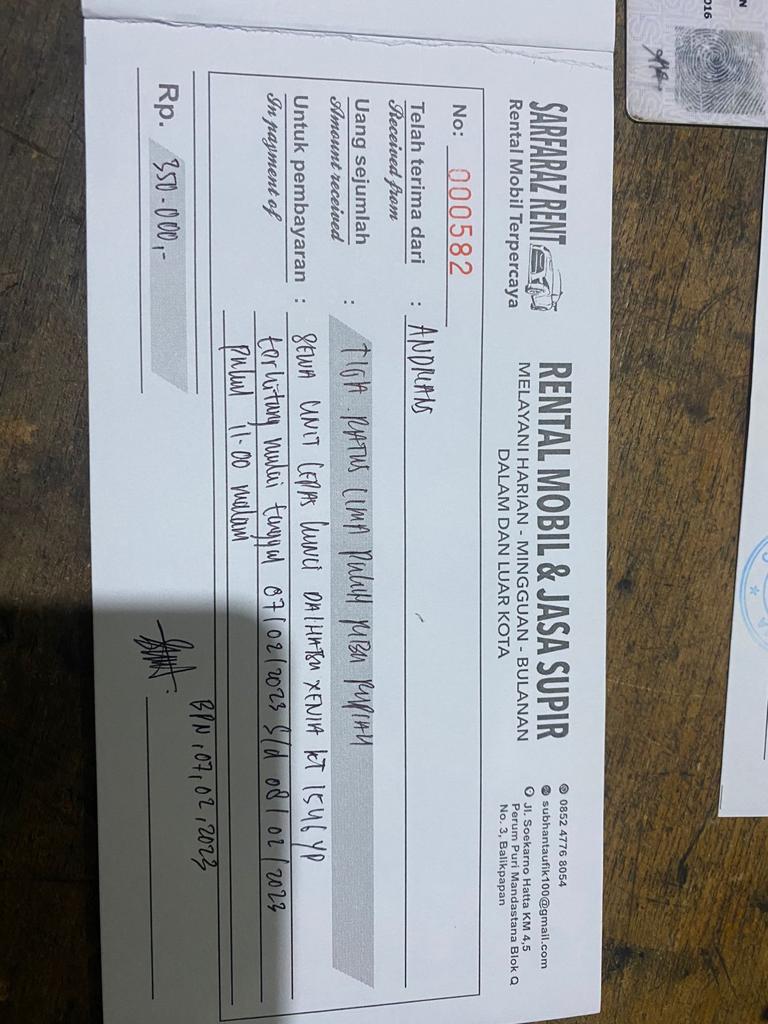 SARFARAZ RENT
Rental Mobil Terpercaya
RENTAL MOBIL & JASA SUPIR
MELAYANI HARIAN - MINGGUAN - BULANAN
DALAM DAN LUAR KOTA
0852 4776 8054
subhantaufik100@gmail.com
Jl. Soekarno Hatta KM 4,5
Perum Puri Mandastana Blok Q
No. 3, Balikpapan
No: 000582
Telah terima dari : ANDRIANS
Received from
Uang sejumlah : TIGA RATUS LIMA PULUH RIBU RUPIAH
Amount received
Untuk pembayaran : SEWA UNIT LEPAS KUNCI DAIHATSU XENIA KT 1546 YP
In payment of
terhitung mulai tanggal 07/02/2023 S/d 08/02/2023
pukul 11.00 malam
BPN, 07, 02, 2023
Rp. 350.000,-
016
N